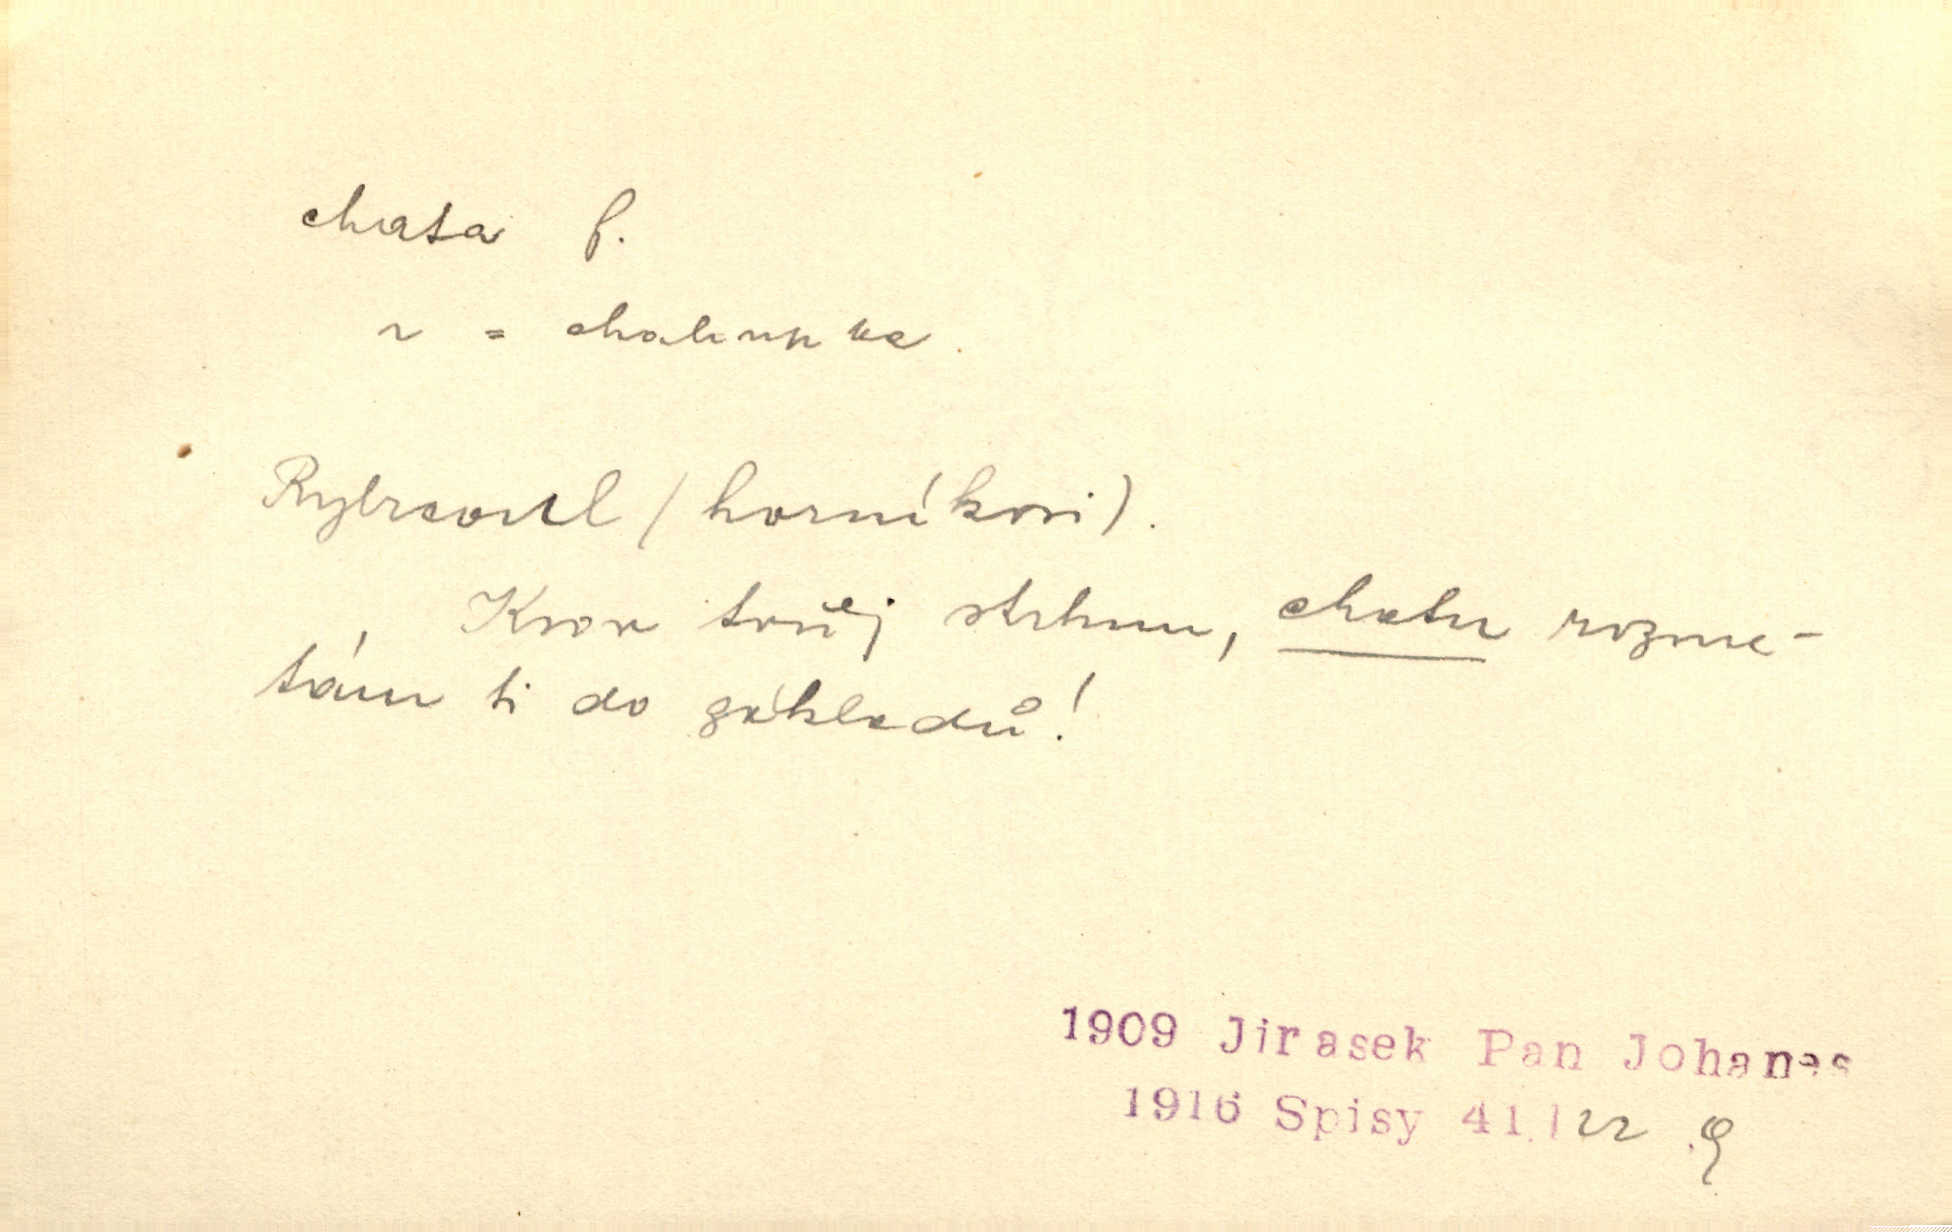 chata f.
= chalupka.
Rybrcoul (horníkovi).
Krov tvůj strhnu, chatu rozme-
tám ti do základů!
1909 Jirasek Pan Johanes
1916 Spisy 41/22